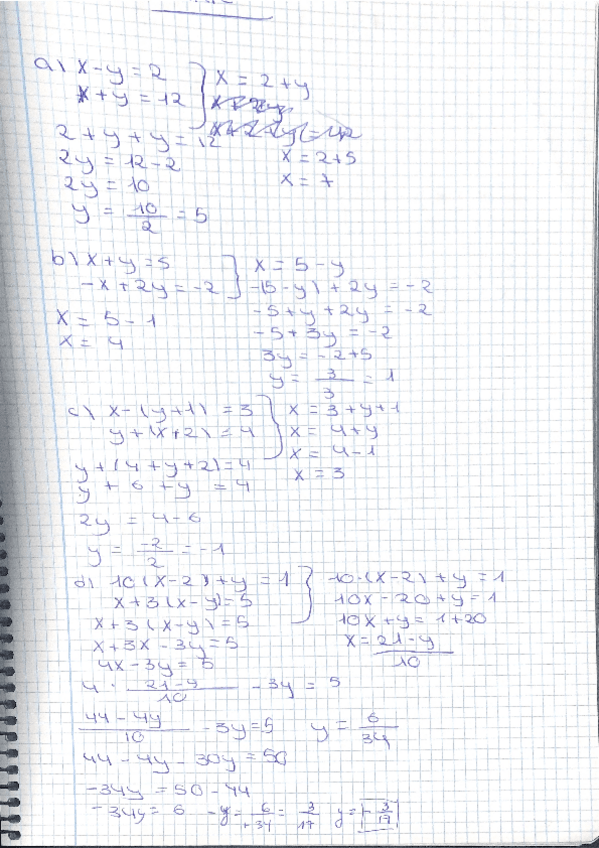 a) x - y = 2
x + y = 12
x = 2 + y
2 + y + y = 12
2y = 12 - 2
2y = 10
y = 10/2 = 5
x = 2 + 5
x = 7
b) x + y = 5
-x + 2y = -2
x = 5 - y
-(5 - y) + 2y = -2
-5 + y + 2y = -2
-5 + 3y = -2
3y = -2 + 5
y = 3/3 = 1
x = 5 - 1
x = 4
c) x - (y + 1) = 3
y + (x + 2) = 4
x = 3 + y + 1
x = 4 + y
x = 4 - 1
x = 3
y + (4 + y + 2) = 4
y + 6 + y = 4
2y = 4 - 6
y = -2/2 = -1
d) 10(x - 2) + y = 1
x + 3(x - y) = 5
x + 3(x - y) = 5
x + 3x - 3y = 5
4x - 3y = 5
10·(x - 2) + y = 1
10x - 20 + y = 1
10x + y = 1 + 20
x = 21 - y/10
4 · 21 - y/10 - 3y = 5
44 - 4y/10 - 3y = 5
44 - 4y - 30y = 50
-34y = 50 - 44
-34y = 6
y = 6/34
-y = 6/+34 = 3/17
y = - 3/17